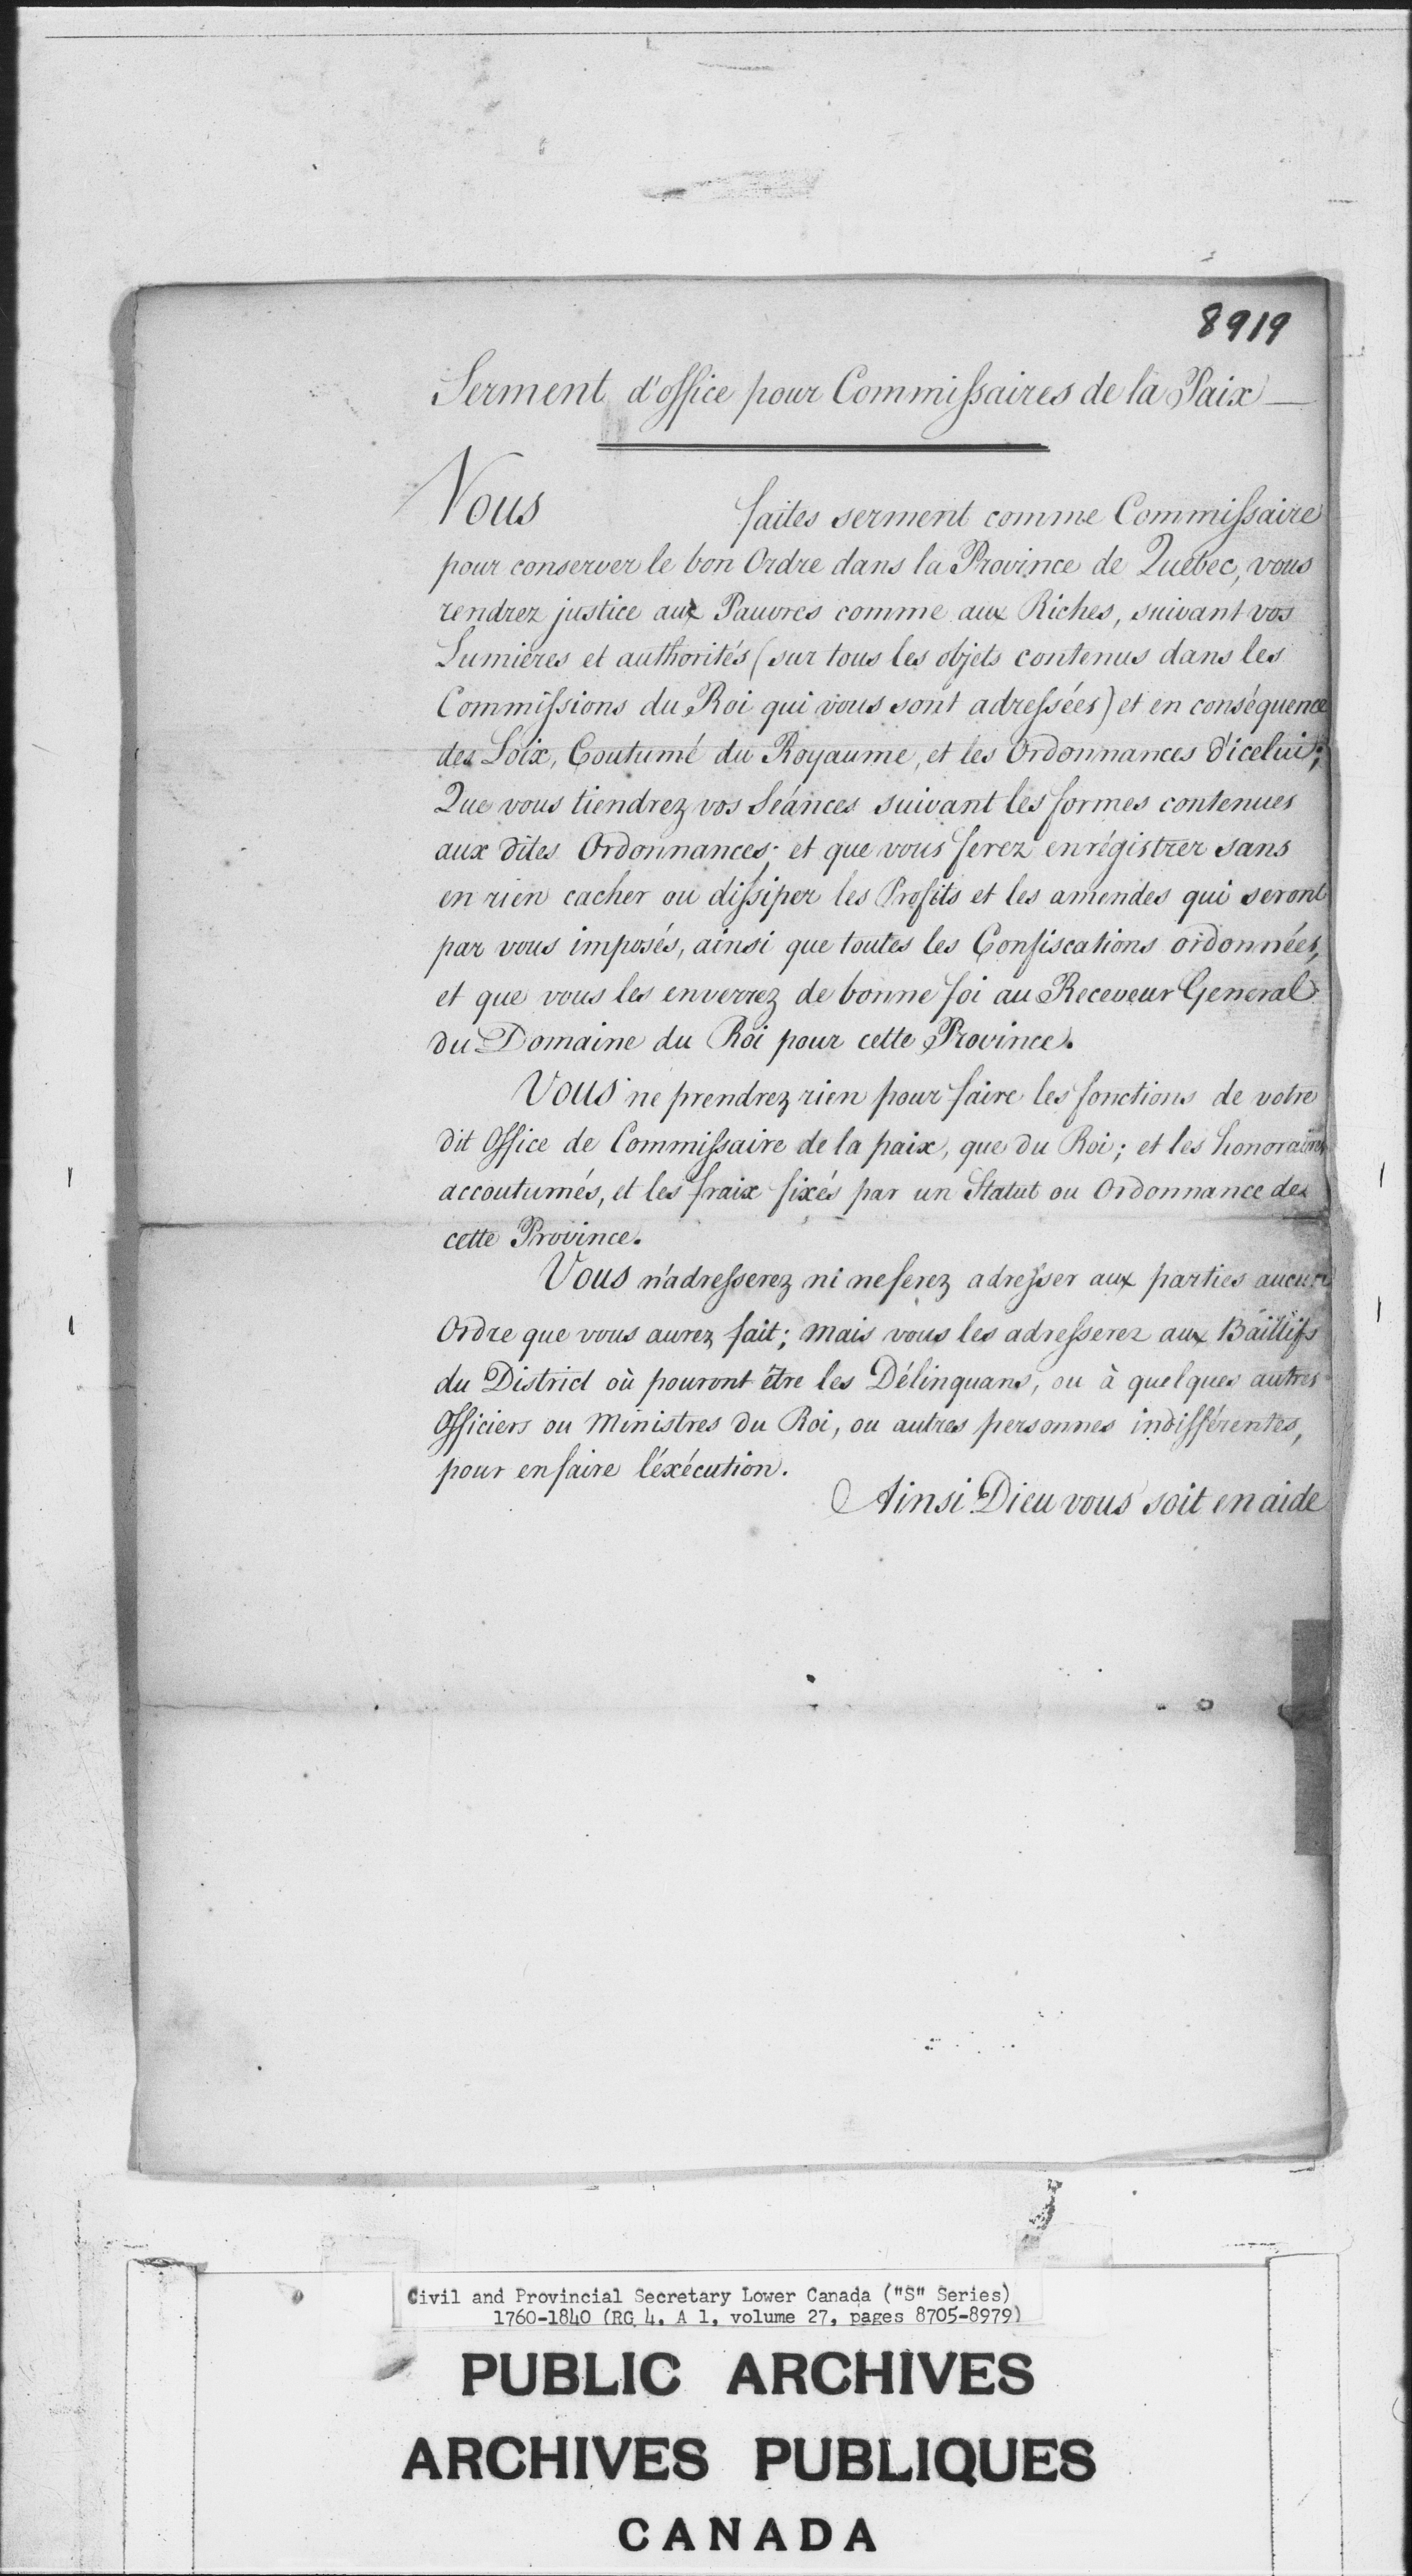 8919
Serment d'office pour Commissaires de la Paix —
Vous faites serment comme Commissaire
pour conserver le bon Ordre dans la Province de Quebec, vous
rendrez justice aux Pauvres comme aux Riches, suivant vos
Lumiéres et authorités (sur tous les objets contenus dans les
Commissions du Roi qui vous sont adressées) et en conséquence
des Loix, Coutumé du Royaume, et les Ordonnances d'icelui;
Que vous tiendrez vos Séances suivant les formes contenues
aux dites Ordonnances; et que vous ferez enrégistrer sans
en rien cacher ou dissiper les Profits et les amendes qui seront
par vous imposés, ainsi que toutes les Confiscations ordonnées,
et que vous les enverrez de bonne foi au Receveur General
du Domaine du Roi pour cette Province.
Vous ne prendrez rien pour faire les fonctions de votre
dit Office de Commissaire de la paix, que du Roi; et les honoraires
accoutumés, et les fraix fixés par un Statut ou Ordonnance de
cette Province.
Vous n'adresserez ni ne ferez adresser aux parties aucun
Ordre que vous aurez fait; mais vous les adresserez aux Baillifs
du District où pouront être les Délinquans, ou à quelques autres
Officiers ou Ministres du Roi, ou autres personnes indifférentes,
pour en faire l'éxécution.
Ainsi Dieu vous soit en aide
Civil and Provincial Secretary Lower Canada ("S" Series)
1760-1840 (RG 4, A 1, volume 27, pages 8705-8979)
PUBLIC ARCHIVES
ARCHIVES PUBLIQUES
CANADA